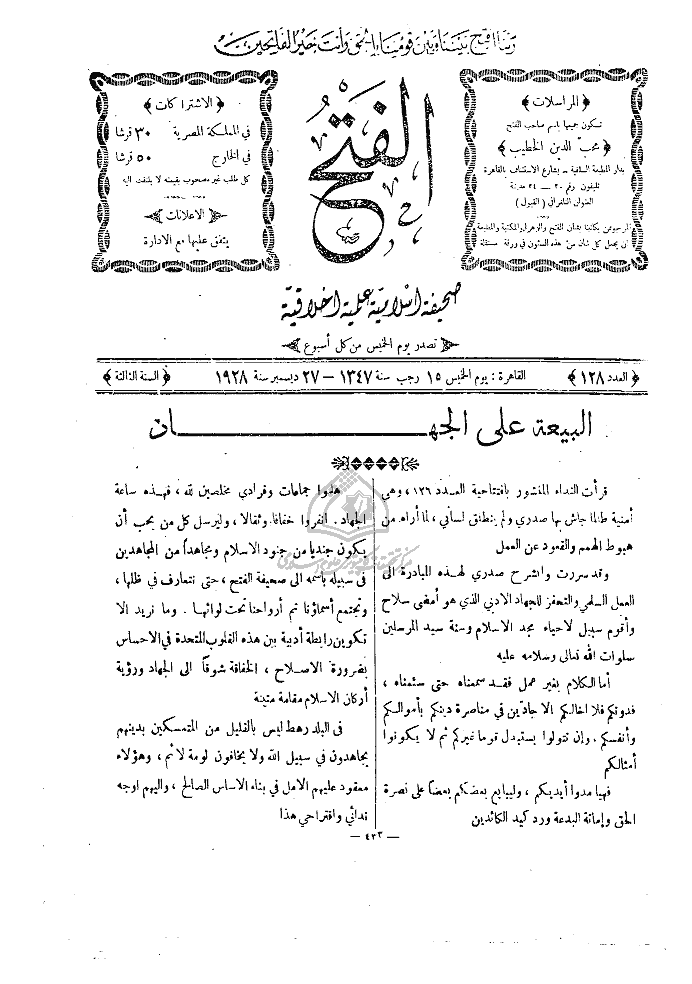 ربنا افتح بيننا وبين قومنا بالحق وأنت خير الفاتحين
﴿ المراسلات ﴾
تكون جميعها باسم صاحب الفتح
﴿ محب الدين الخطيب ﴾
بدار المطبعة السلفية – بشارع الاستئناف بالقاهرة
تليفون رقم ٢٠ — ٢٤ مدينة
العنوان التلغرافي ( القبول )
المرجو ممن يكاتبنا بشأن الفتح والزهراء والمكتبة والمطبعة
أن يجعل كل شأن من هذه الشئون في ورقة مستقلة
الفتح
﴿ الاشتراكات ﴾
في المملكة المصرية ٣٠ قرشا
في الخارج ٥٠ قرشا
كل طلب غير مصحوب بقيمته لا يلتفت اليه
﴿ الاعلانات ﴾
يتفق عليها مع الادارة
صحيفة اسلامية علمية اخلاقية
﴿ تصدر يوم الخميس من كل أسبوع ﴾
﴿ العدد ١٢٨ ﴾ القاهرة : يوم الخميس ١٥ رجب سنة ١٣٤٧ – ٢٧ ديسمبر سنة ١٩٢٨ ﴿ السنة الثالثة ﴾
البيعة على الجهـــــان
قرأت النداء المنشور بافتتاحية العدد ١٢٦ ، وهي
أمنية طالما جاش بها صدري ولم ينطلق لساني ، لما أراه من
هبوط الهمم والقعود عن العمل
وقد سررت وانشرح صدري لهذه البادرة الى
العمل السلمي والتحفز للجهاد الادبي الذي هو أمضى سلاح
وأقوم سبيل لاحياء مجد الاسلام وسنة سيد المرسلين
صلوات الله تعالى وسلامه عليه
أما الكلام بغير عمل فقد سمعناه حتى سئمناه ،
فدونكم فلا اخالكم الا جادّين في مناصرة دينكم بأموالكم
وأنفسكم . وإن تتولوا يستبدل قوما غيركم ثم لا يكونوا
أمثالكم
فهيا مدوا أيديكم ، وليبايع بعضكم بعضا على نصرة
الحق وإماتة البدعة ورد كيد الكائدين
هلموا جماعات وفرادى مخلصين لله ، فهذه ساعة
الجهاد . انفروا خفافا وثقالا ، وليرسل كل من يحب أن
يكون جنديا من جنود الاسلام ومجاهداً من المجاهدين
في سبيله باسمه الى صحيفة الفتح ، حتى نتعارف في ظلها ،
وتجتمع أسماؤنا ثم أرواحنا تحت لوائها . وما نريد الا
تكوين رابطة أدبية بين هذه القلوب المتحدة في الاحساس
بضرورة الاصلاح ، الخفاقة شوقاً الى الجهاد ورؤية
أركان الاسلام مقامة متينة
في البلد رهط ليس بالقليل من المتمسكين بدينهم
يجاهدون في سبيل الله ولا يخافون لومة لائم ، وهؤلاء
معقود عليهم الامل في بناء الاساس الصالح ، واليهم أوجه
ندائي واقتراحي هذا
— ٤٣٣ —